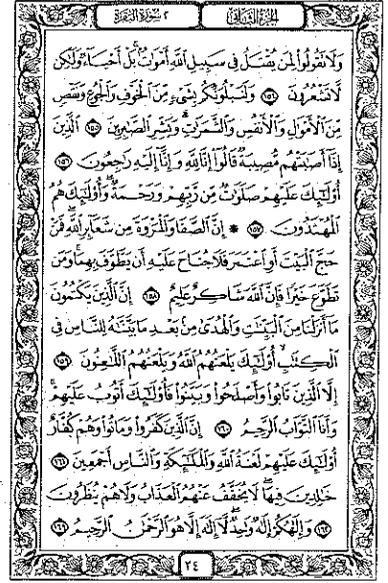 الجزء الثانى ٢ سورة البقرة
وَلَا تَقُولُوا۟ لِمَن يُقْتَلُ فِى سَبِيلِ ٱللَّهِ أَمْوَٰتٌۢ بَلْ أَحْيَآءٌ وَلَٰكِن
لَّا تَشْعُرُونَ ١٥٤ وَلَنَبْلُوَنَّكُم بِشَىْءٍ مِّنَ ٱلْخَوْفِ وَٱلْجُوعِ وَنَقْصٍ
مِّنَ ٱلْأَمْوَٰلِ وَٱلْأَنفُسِ وَٱلثَّمَرَٰتِ وَبَشِّرِ ٱلصَّٰبِرِينَ ١٥٥ ٱلَّذِينَ
إِذَآ أَصَٰبَتْهُم مُّصِيبَةٌ قَالُوٓا۟ إِنَّا لِلَّهِ وَإِنَّآ إِلَيْهِ رَٰجِعُونَ ١٥٦
أُو۟لَٰٓئِكَ عَلَيْهِمْ صَلَوَٰتٌ مِّن رَّبِّهِمْ وَرَحْمَةٌ وَأُو۟لَٰٓئِكَ هُمُ
ٱلْمُهْتَدُونَ ١٥٧ * إِنَّ ٱلصَّفَا وَٱلْمَرْوَةَ مِن شَعَآئِرِ ٱللَّهِ فَمَنْ
حَجَّ ٱلْبَيْتَ أَوِ ٱعْتَمَرَ فَلَا جُنَاحَ عَلَيْهِ أَن يَطَّوَّفَ بِهِمَا وَمَن
تَطَوَّعَ خَيْرًا فَإِنَّ ٱللَّهَ شَاكِرٌ عَلِيمٌ ١٥٨ إِنَّ ٱلَّذِينَ يَكْتُمُونَ
مَآ أَنزَلْنَا مِنَ ٱلْبَيِّنَٰتِ وَٱلْهُدَىٰ مِنۢ بَعْدِ مَا بَيَّنَّٰهُ لِلنَّاسِ فِى
ٱلْكِتَٰبِ أُو۟لَٰٓئِكَ يَلْعَنُهُمُ ٱللَّهُ وَيَلْعَنُهُمُ ٱللَّٰعِنُونَ ١٥٩
إِلَّا ٱلَّذِينَ تَابُوا۟ وَأَصْلَحُوا۟ وَبَيَّنُوا۟ فَأُو۟لَٰٓئِكَ أَتُوبُ عَلَيْهِمْ
وَأَنَا ٱلتَّوَّابُ ٱلرَّحِيمُ ١٦٠ إِنَّ ٱلَّذِينَ كَفَرُوا۟ وَمَاتُوا۟ وَهُمْ كُفَّارٌ
أُو۟لَٰٓئِكَ عَلَيْهِمْ لَعْنَةُ ٱللَّهِ وَٱلْمَلَٰٓئِكَةِ وَٱلنَّاسِ أَجْمَعِينَ ١٦١
خَٰلِدِينَ فِيهَا لَا يُخَفَّفُ عَنْهُمُ ٱلْعَذَابُ وَلَا هُمْ يُنظَرُونَ
١٦٢ وَإِلَٰهُكُمْ إِلَٰهٌ وَٰحِدٌ لَّآ إِلَٰهَ إِلَّا هُوَ ٱلرَّحْمَٰنُ ٱلرَّحِيمُ ١٦٣
٢٤